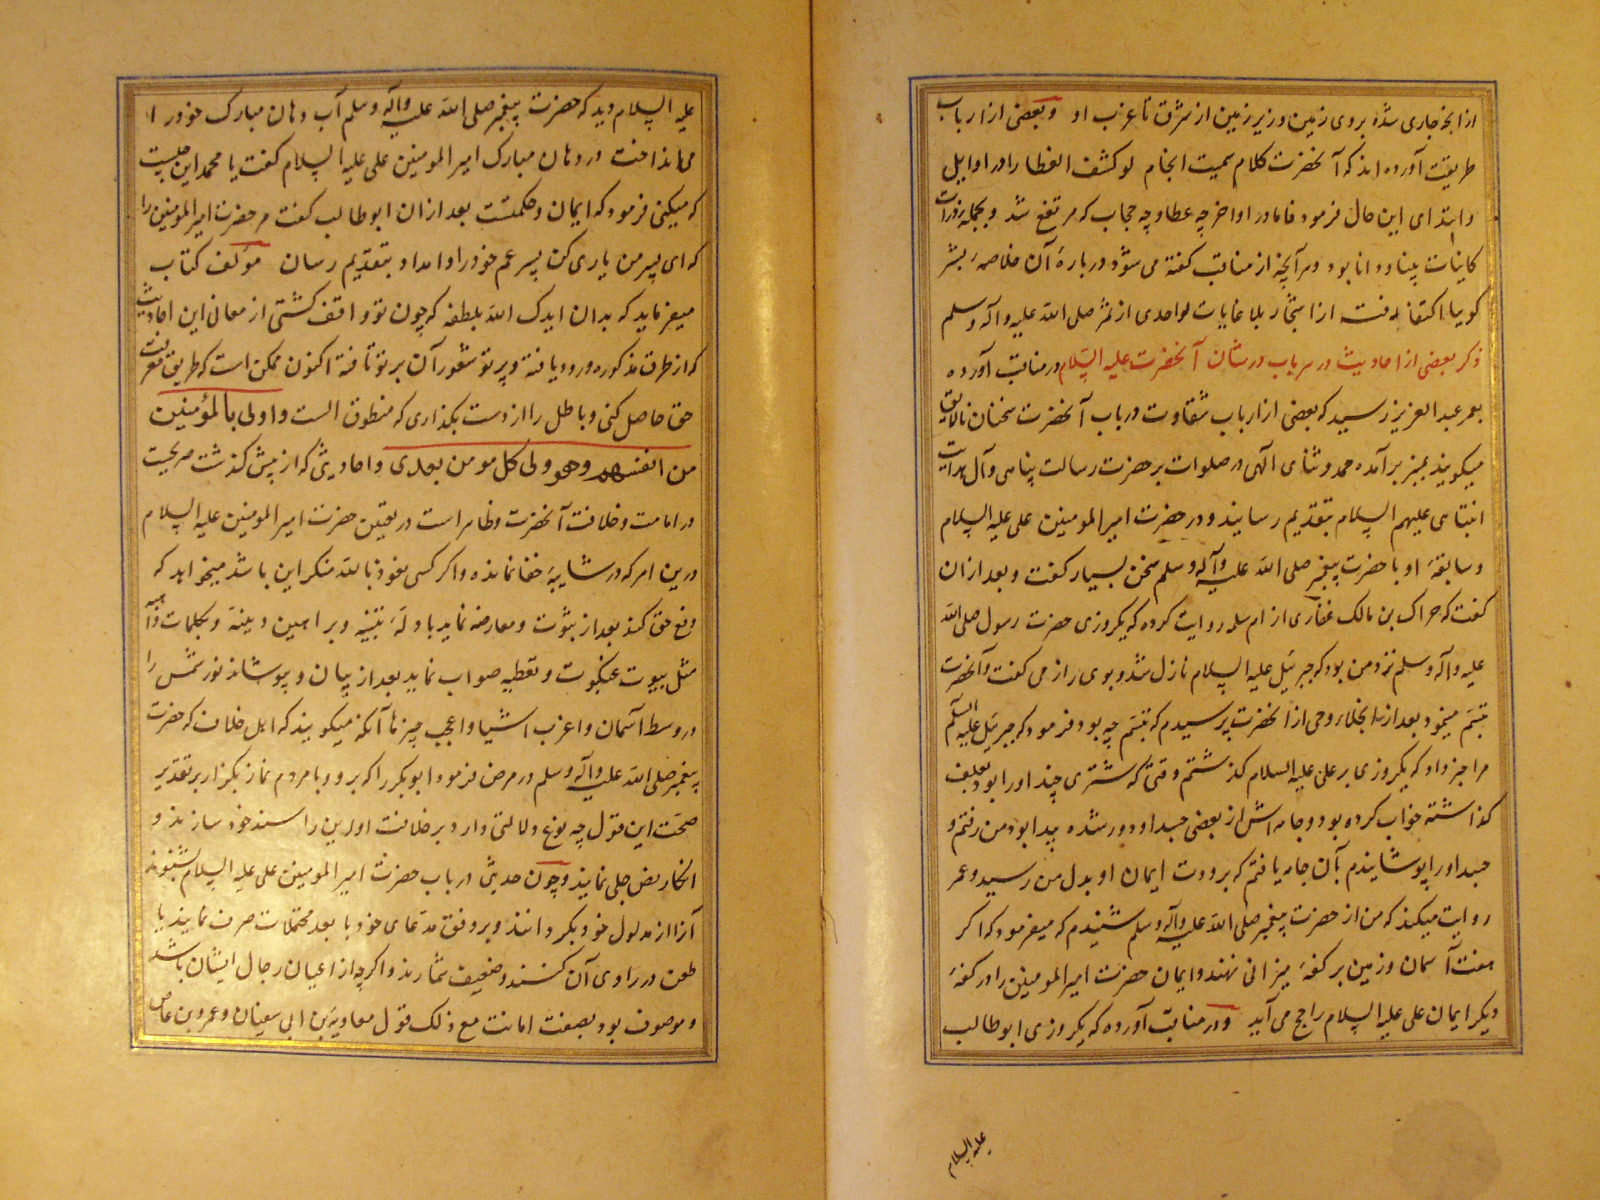 از آنچه جاری شده بروی زمین و زیر زمین از شرق تا غرب او و بعضی از ارباب
طریقت آورده اند که آنحضرت کلام سمیت انجام لو کشف الغطا را در اوایل
و ابتدای این حال فرمود فاما در اواخر چه غطا و چه حجاب که مرتفع شد و بجمله ذرات
کاینات بینا و دانا بود و هر آنچه از مناقب گفته می شود در باره آن خلاصه بشر
گویا اکتفا رفته از اشجار بلا غایات بواحدی از ثمر صلی الله علیه و آله و سلم
ذکر بعضی از احادیث در هر باب در شان آنحضرت علیه السلام در مناقب آورده
بعمر عبد العزیز رسید که بعضی از ارباب شقاوت در باب آنحضرت سخنان نالایق
میگویند بمنبر برآمده حمد و ثنای الهی و صلوات بر حضرت رسالت پناهی و آل هدایت
انتباهی علیهم السلام بتقدیم رسانید و در حضرت امیر المومنین علی علیه السلام
و سابقه او با حضرت پیغمبر صلی الله علیه و آله و سلم سخن بسیار گفت و بعد از ان
گفت که عراک بن مالک غفاری از ام سلمه روایت کرده که یکروزی حضرت رسول صلی الله
علیه و آله و سلم نزد من بود که جبرئیل علیه السلام نازل شد و بوی راز می گفت و آنحضرت
تبسم مینمود بعد از انجلاء وحی از آنحضرت پرسیدم که تبسم چه بود فرمود که جبرئیل علیه السلم
مرا خبر داد که یکروزی بر علی علیه السلام گذشتم وقتی که شتری چند او را بود بعلف
گذاشته خواب کرده بود و جامه اش از بعضی جسد او دور شده پیدا بود من رفتم و
جسد او را پوشانیدم بآن جامه یافتم که برودت ایمان او بدل من رسید و عمر
روایت میکند که من از حضرت پیغمبر صلی الله علیه و آله و سلم شنیدم که میفرمود که اگر
هفت آسمان و زمین بر کفه میزانی نهند و ایمان حضرت امیر المومنین را در کفه
دیگر ایمان علی علیه السلام راجح می آید و در مناقب آورده که یکروزی ابو طالب
علیه السلام
علیه السلام دید که حضرت پیغمبر صلی الله علیه و آله و سلم آب دهان مبارک خود را
می انداخت در دهان مبارک امیر المومنین علی علیه السلام گفت یا محمد این چیست
که میکنی فرمود که ایمان و حکمتست بعد از ان ابو طالب گفت مر حضرت امیر المومنین را
که ای پسر من یاری کن پسر عم خود را و امداد بتقدیم رسان مؤلف کتاب
میفرماید که بدان ایدک الله بلطفه که چون تو واقف گشتی از معانی این احادیث
که از طرق مذکوره ورود یافته و پرتو شعور آن بر تو تافته اکنون ممکن است که طریق معرفت
حق حاصل کنی و باطل را از دست بگذاری که منطوق الست و اولی بالمؤمنین
من انفسهم وهو ولی کل مومن بعدی و احادیثی که از پیش گذشت صریحست
در امامت و خلافت آنحضرت و ظاهر است در تعیین حضرت امیر المومنین علیه السلام
درین امر که در شایبه خفا نمانده و اگر کسی نعوذ بالله منکر این باشد میخواهد که
دفع حق کند بعد از ثبوت و معارضه نماید با دله بینه و براهین و بکلمات واهیه
مثل بیوت عنکبوت و تغطیه صواب نماید بعد از بیان و پوشاند نور شمس را
در وسط آسمان و اغرب اشیا و اعجب چیزها آنکه میگویند که اهل خلاف که حضرت
پیغمبر صلی الله علیه و آله و سلم در مرض فرمود ابو بکر را که برو و با مردم نماز بگزار بر تقدیر
صحت این قول چه نوع دلالتی دارد بر خلافت او این را سند خود سازند و
انکار نص جلی نمایند و چون حدیثی در باب حضرت امیر المومنین علی علیه السلام بشنوند
آنرا از مدلول خود بگردانند و بر وفق مدعای خود با بعد محتملات صرف نمایند یا
طعن در راوی آن کنند و ضعیف شمارند و اگرچه از اعیان رجال ایشان باشد
و موصوف بود بصفت امانت مع ذلک قول معاویه بن ابی سفیان و عمرو بن عاص